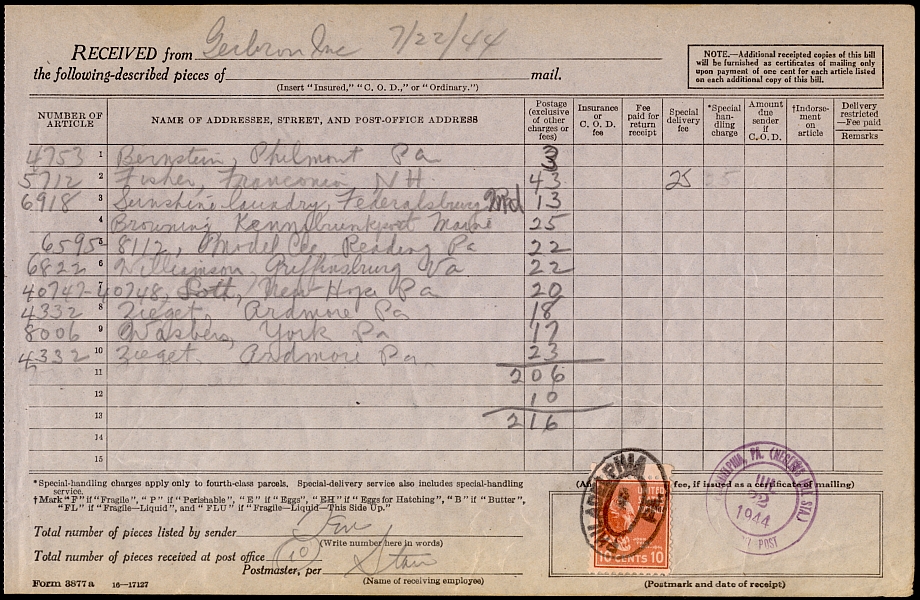 RECEIVED from Gerbron Inc 7/22/44
the following-described pieces of mail.
(Insert "Insured," "C. O. D.," or "Ordinary.")
NOTE.—Additional receipted copies of this bill
will be furnished as certificates of mailing only
upon payment of one cent for each article listed
on each additional copy of this bill.
NUMBER OF ARTICLE NAME OF ADDRESSEE, STREET, AND POST-OFFICE ADDRESS Postage (exclusive of other charges or fees) Insurance or C. O. D. fee Fee paid for return receipt Special delivery fee *Special handling charge Amount due sender if C. O. D. †Indorsement on article Delivery restricted —Fee paid Remarks
4753 1 Bernstein, Philmont Pa 3
5712 2 Fisher, Franconia NH 43 25
6918 3 Sunshine laundry, Federalsburg Md 13
4 Browning Kennebunkport Maine 25
6595 5 8112, Model Cle Reading Pa 22
6822 6 Williamson, Griffinsburg Va 22
40747-40748, Lott, New Hope Pa 20
4332 8 Zieget Ardmore Pa 18
8006 9 York Pa 17
4332 10 Zieget Ardmore Pa 23
11 206
12 10
13 216
14
15
*Special-handling charges apply only to fourth-class parcels. Special-delivery service also includes special-handling
service.
†Mark "F" if "Fragile", "P" if "Perishable", "E" if "Eggs", "EH" if "Eggs for Hatching", "B" if "Butter",
"FL" if "Fragile—Liquid", and "FLU" if "Fragile—Liquid—This Side Up."
fee, if issued as a certificate of mailing)
PHILADELPHIA PA.
10 CENTS 10
1944
POST
Total number of pieces listed by sender Ten
(Write number here in words)
Total number of pieces received at post office 10
Postmaster, per
(Name of receiving employee)
(Postmark and date of receipt)
Form 3877 a 16—17127